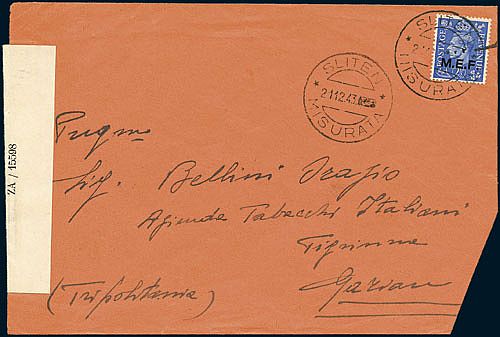 SLITEN
21.12.43
MISURATA
SLITEN
MISURATA
POSTAGE
M.E.F.
ZA / 15598
Pregmo
Sig. Bellini Orazio
Azienda Tabacchi Italiani
Tigrinna
Garian
(Tripolitania)